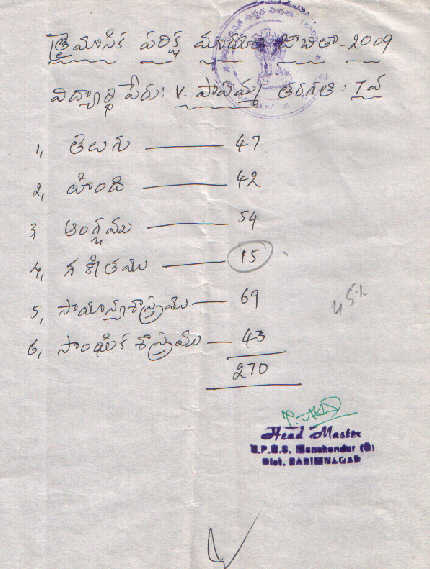 త్రైమాసిక పరీక్ష మార్కుల జాబితా-2009
విద్యార్థి పేరు: V. తరగతి: 7వ
1, తెలుగు — 47
2, హింది — 42
3, ఆంగ్లము — 54
4, గణితము — 15
5, సామాన్యశాస్త్రము — 69
6, సాంఘిక శాస్త్రము — 43
270
45%
Head Master
U.P.S. Manakondur (G)
Dist. KARIMNAGAR